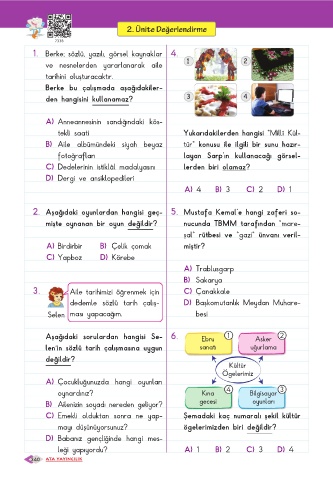 2. Ünite Değerlendirme
1. Berke; sözlü, yazılı, görsel kaynaklar
ve nesnelerden yararlanarak aile
tarihini oluşturacaktır.
Berke bu çalışmada aşağıdakiler-
den hangisini kullanamaz?
A) Anneannesinin sandığındaki kös-
tekli saati
B) Aile albümündeki siyah beyaz
fotoğrafları
C) Dedelerinin istiklâl madalyasını
D) Dergi ve ansiklopedileri
2. Aşağıdaki oyunlardan hangisi geç-
mişte oynanan bir oyun değildir?
A) Birdirbir B) Çelik çomak
C) Yapboz D) Körebe
3. Aile tarihimizi öğrenmek için
dedemle sözlü tarih çalış-
ması yapacağım.
Selen
Aşağıdaki sorulardan hangisi Se-
len'in sözlü tarih çalışmasına uygun
değildir?
A) Çocukluğunuzda hangi oyunları
oynardınız?
B) Ailenizin soyadı nereden geliyor?
C) Emekli olduktan sonra ne yap-
mayı düşünüyorsunuz?
D) Babanız gençliğinde hangi mes-
leği yapıyordu?
4.
1 2
3 4
Yukarıdakilerden hangisi "Millî Kül-
tür" konusu ile ilgili bir sunu hazır-
layan Sarp'ın kullanacağı görsel-
lerden biri olamaz?
A) 4 B) 3 C) 2 D) 1
5. Mustafa Kemal'e hangi zaferi so-
nucunda TBMM tarafından "mare-
şal" rütbesi ve "gazi" ünvanı veril-
miştir?
A) Trablusgarp
B) Sakarya
C) Çanakkale
D) Başkomutanlık Meydan Muhare-
besi
6.
Ebru 1
sanatı
Asker 2
uğurlama
Kültür
Ögelerimiz
Kına 4
gecesi
Bilgisayar 3
oyunları
Şemadaki kaç numaralı şekil kültür
ögelerimizden biri değildir?
A) 1 B) 2 C) 3 D) 4
240 ATA YAYINCILIK